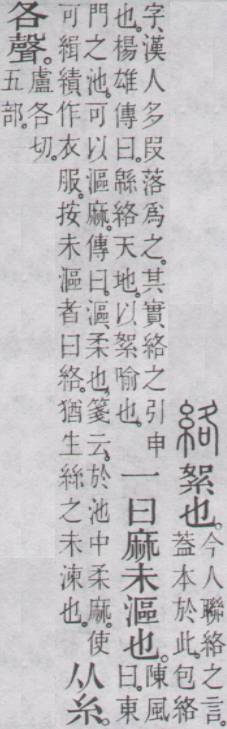 絡絮也。今人聯絡之言。蓋本於此。包絡
字、漢人多叚落爲之。其實絡之引申也。楊雄傳曰。緜絡天地。以絮喻也。一曰麻未漚也。陳風曰。東
門之池。可以漚麻。傳曰。漚、柔也。箋云。於池中柔麻。使可緝績作衣服。按未漚者曰絡。猶生絲之未湅也。从糸。
各聲。盧各切。五部。